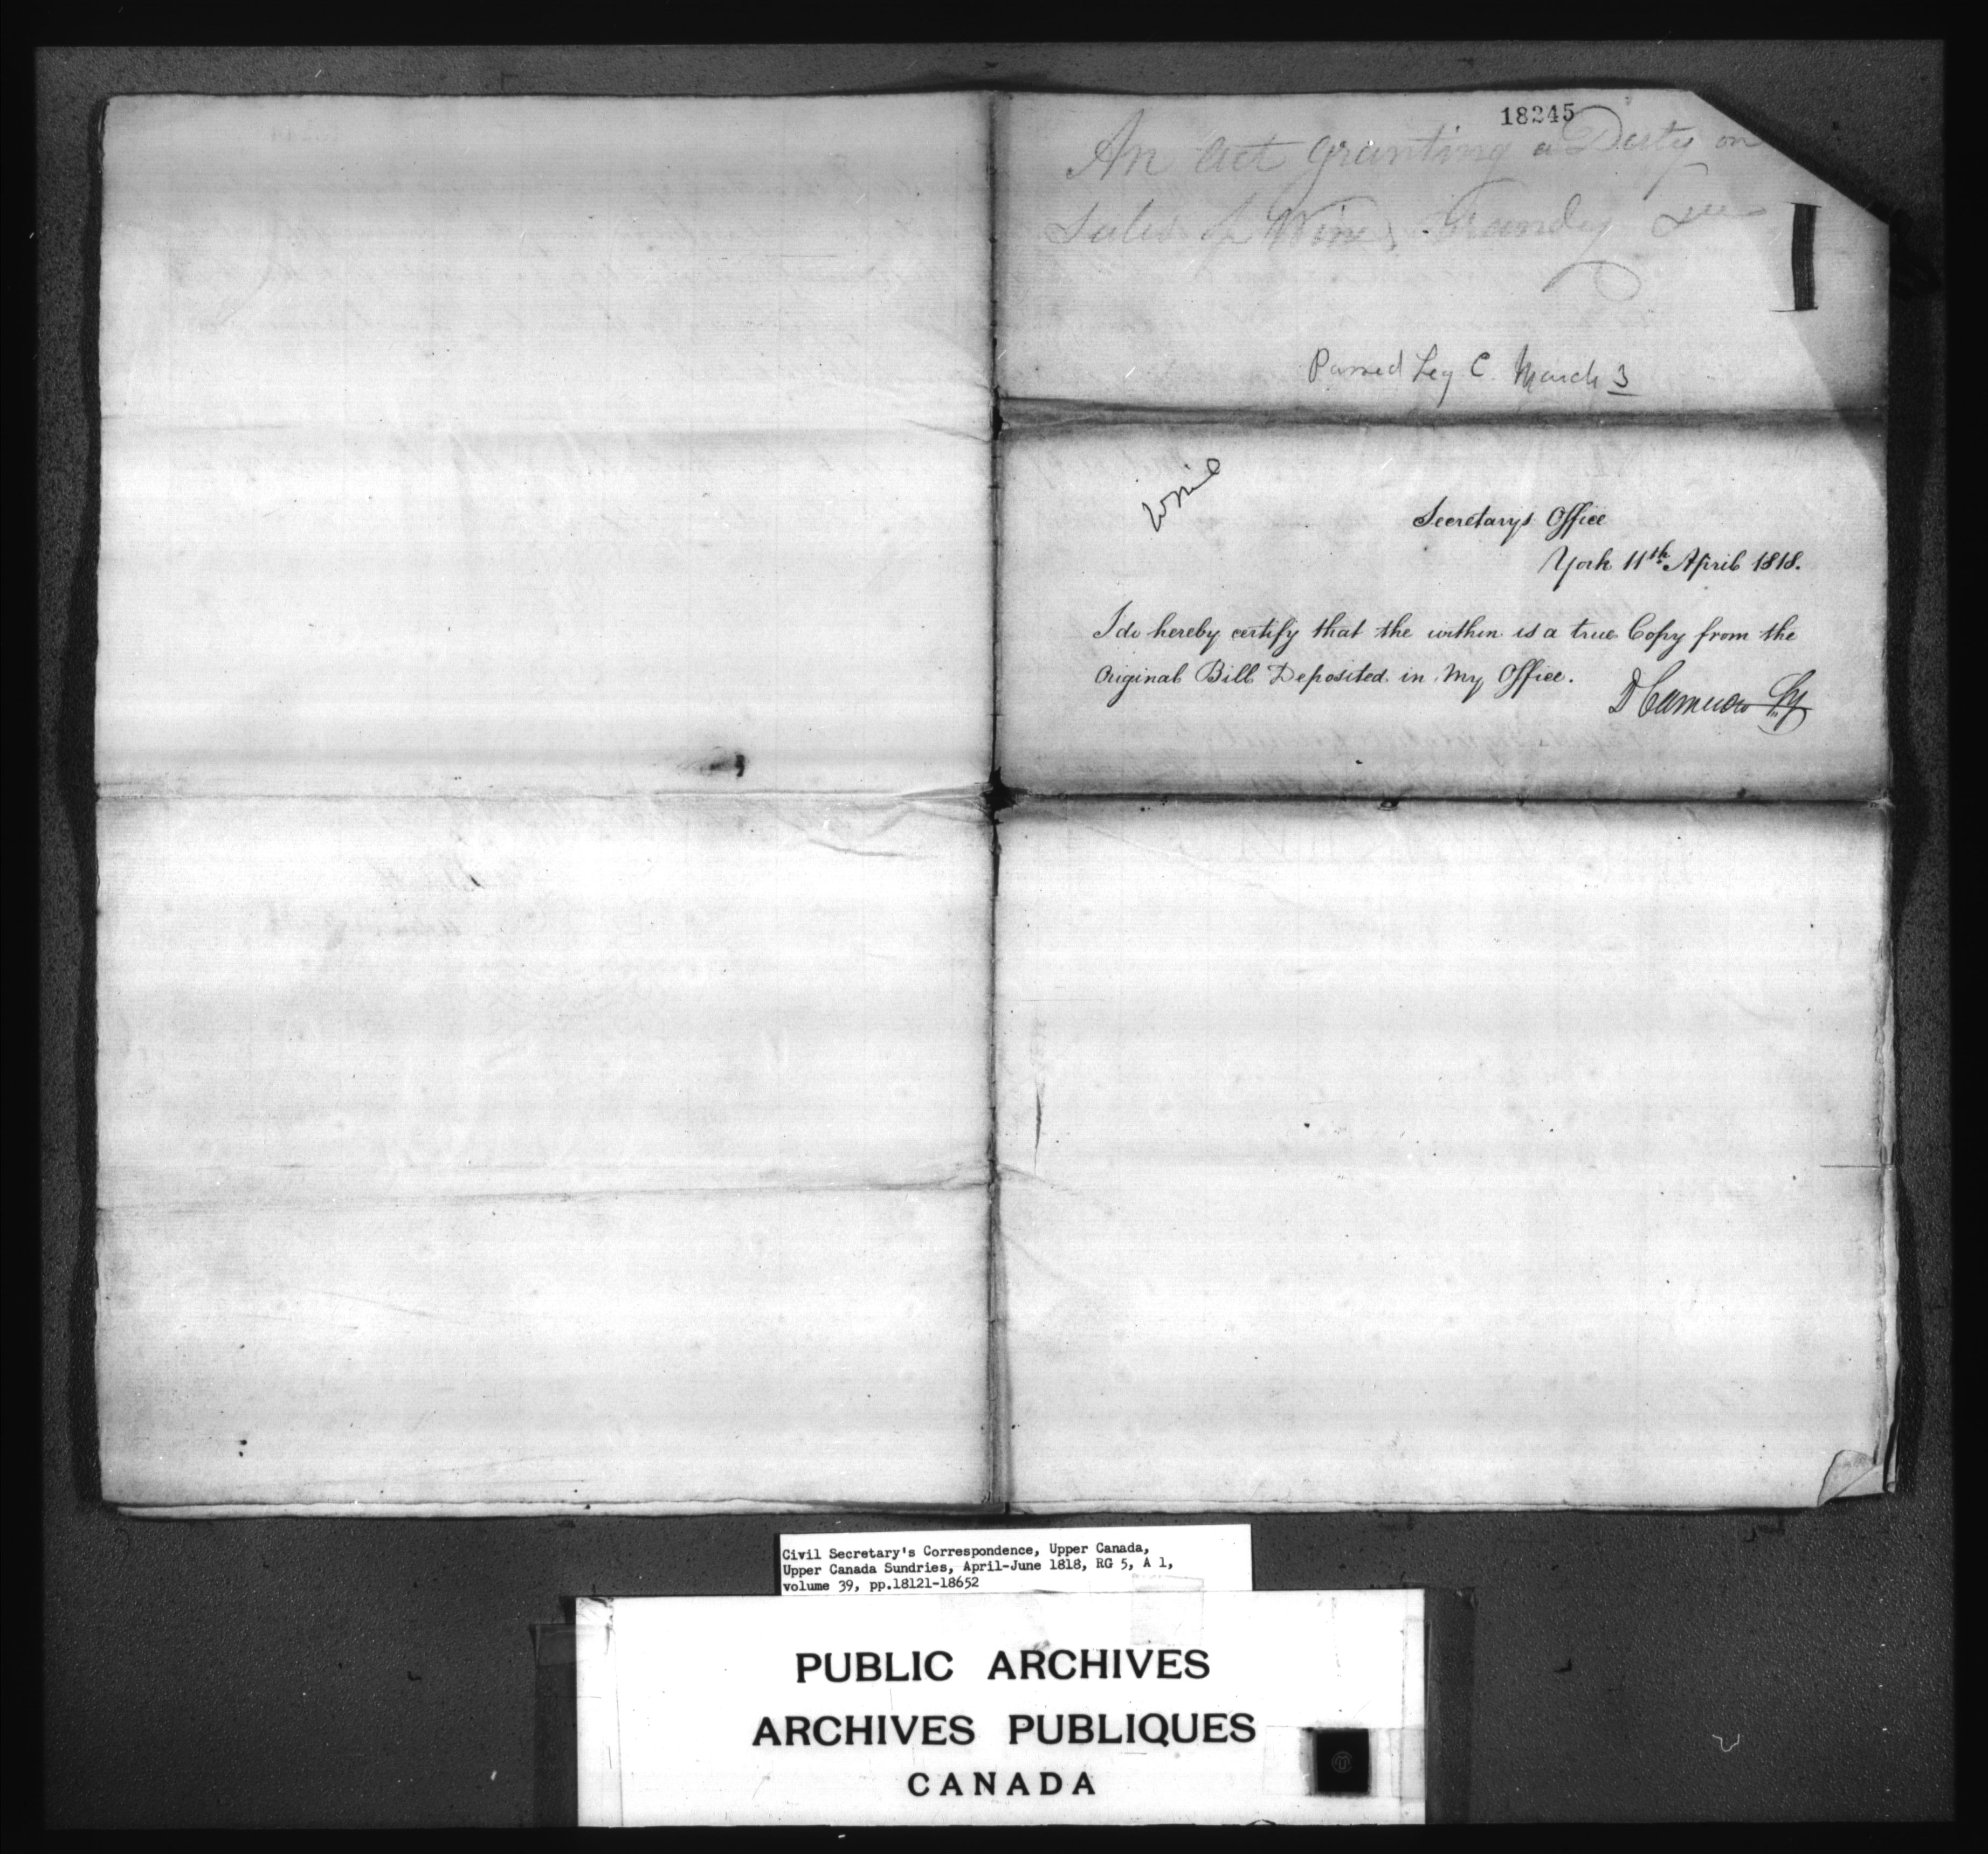 18245
An Act granting a Duty on
Sales of Wine, Brandy &c
Passed Leg C. March 3
Secretarys Office
York 11th April 1818.
I do hereby certify that the within is a true Copy from the
Original Bill Deposited in My Office.
D Cameron Sy
Civil Secretary's Correspondence, Upper Canada,
Upper Canada Sundries, April-June 1818, RG 5, A 1,
volume 39, pp.18121-18652
PUBLIC ARCHIVES
ARCHIVES PUBLIQUES
CANADA